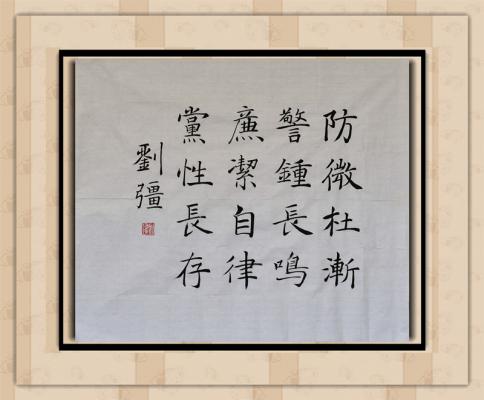 防微杜漸
警鍾長鳴
廉潔自律
黨性長存
劉彊